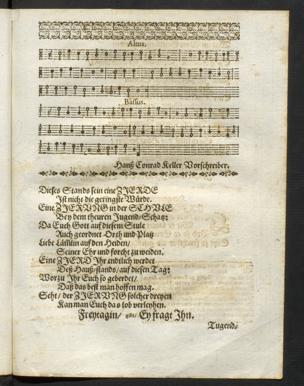 Altus.
Bassus.
Hanß Conrad Keller Vorschreiber.
Dieses Stands sein eine ZIERDE
Ist nicht die geringste Würde.
Eine ZIERUNG in der SCHULE
Bey dem theuren Jugend-Schatz:
Da Euch Gott auf diesem Stule
Auch geordnet Orth und Platz
Liebe auf den Heiden/
Seiner Ehr und forcht zu weiden.
Eine ZIERD Ihr endtlich werdet
Deß Hauß-stands/ auf diesen Tag:
Worzu Ihr Euch so geberdet/
Daß das best man hoffen mag.
Seht/ der ZIERUNG solcher dreyen
Kan man Euch das lob verleyhen.
Freytagin/ Ey fragt Ihn.
Tugend/